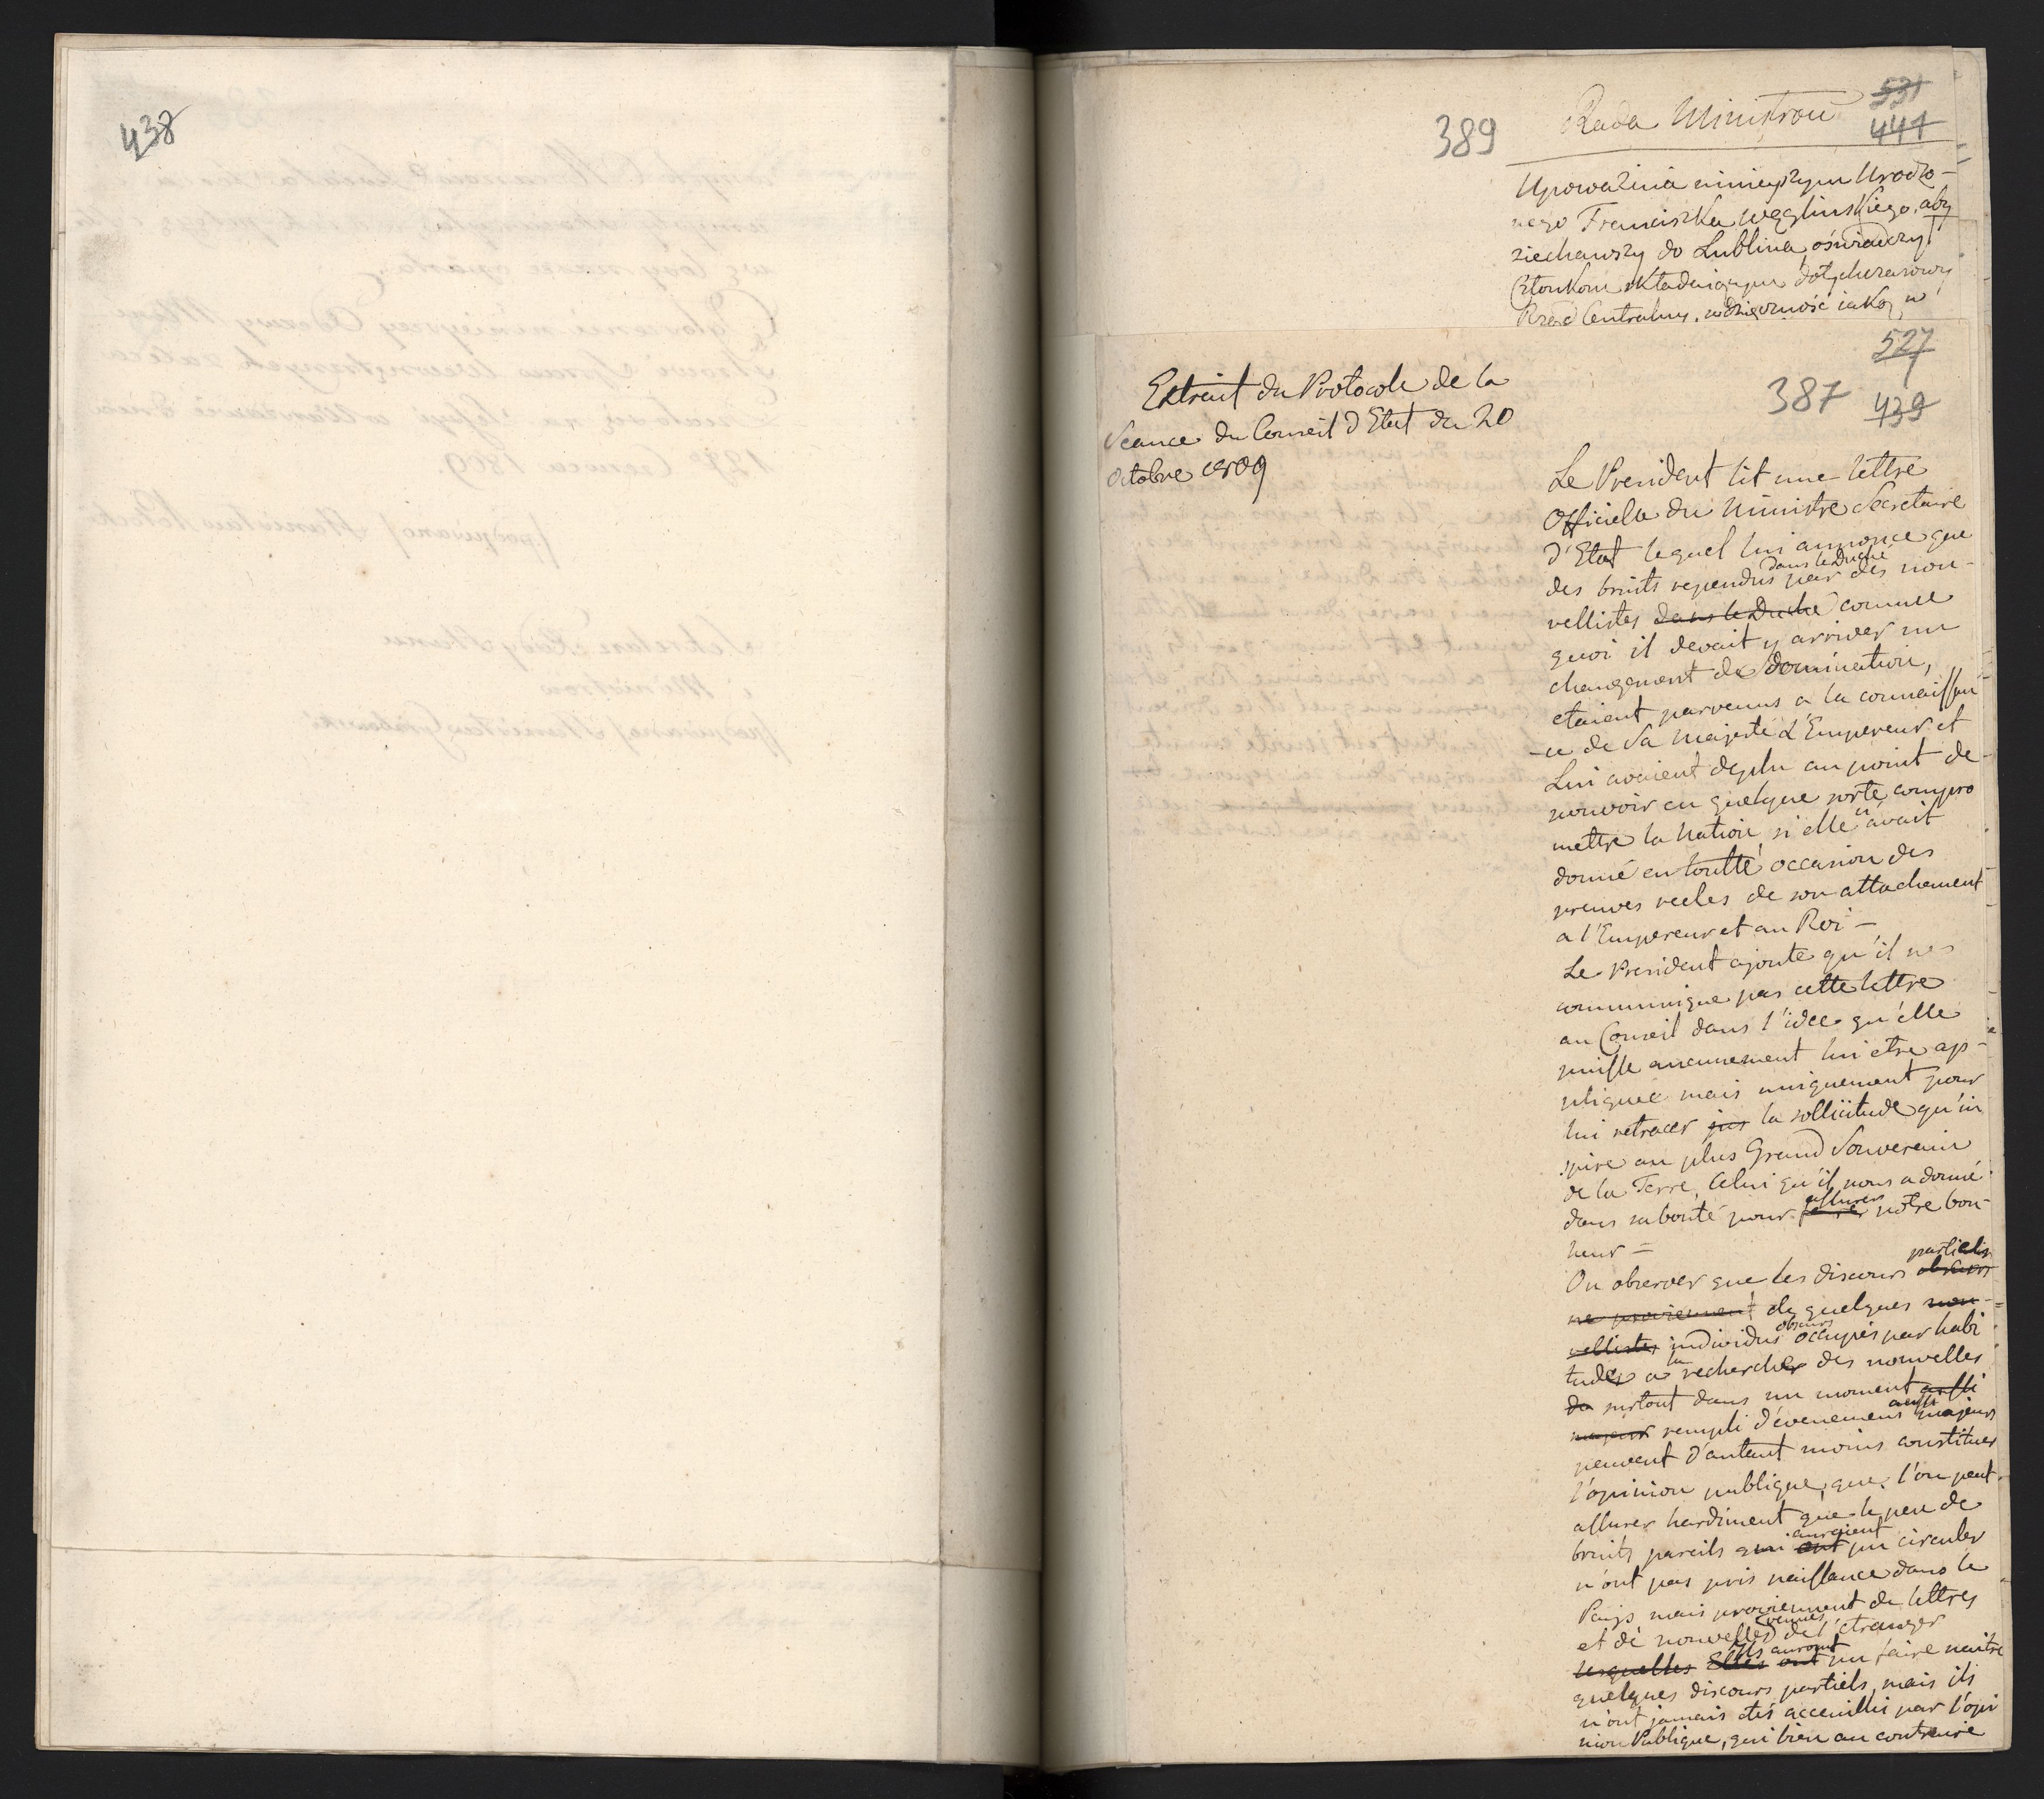 438
389
Rada Ministrow
531
441
Upoważnia ninieyszym Urodzo-
nego Franciszka Węglinskiego, aby
ziechawszy do Lublina, oświadczył
Członkom składaiącym dotychczasowy
Rząd Centralny, wdzięczność iaką w
527
387
439
Extrait du Protocole de la
Seance du Conseil d'Etat du 20
Octobre 1809
Le President lit une lettre
Officielle du Ministre Secretaire
d'Etat lequel lui annonce que
des bruits rependus dans le Duché par des nou-
vellistes dans le Duche comme
quoi il devait y arriver un
changement de domination,
etaient parvenus a la connaissan
-ce de Sa Majesté L'Empereur et
Lui avaient deplu au point de
pouvoir en quelque sorte compro
mettre la Nation, si elle n'avait
donné en toutte occasion des
preuves reeles de son attachement
a l'Empereur et au Roi —
Le President ajoute qu'il ne
communique pas cette lettre
au Conseil dans l'idee qu'elle
puisse aucunement lui etre ap-
pliquée mais uniquement pour
lui retracer par la sollicitude qu'in
spire au plus Grand Souverain
de la Terre, Celui qu'il nous a donné
dans sa bonté pour assurer notre bon-
heur =
On observer que les discours partiels obscurs
ne proviennent de quelques nou-
vellistes individus obscurs occupés par habi
tude a la recherche des nouvelles
da surtout dans un moment aussi
majeur rempli d'evenemens aussi majeurs
peuvent d'autant moins constituer
l'opinion publique, que l'on peut
assurer hardiment que le peu de
bruits pareils qui auraient ont pu circuler
n'ont pas pris naissance dans le
Pays mais proviennent de lettres
et de nouvelles venues de l'etranger
lesquelles Elles ont Ils auront pu faire naitre
quelques discours partiels, mais ils
n'ont jamais étés acceuillis par l'opi
nion Publique, qui bien au contraire